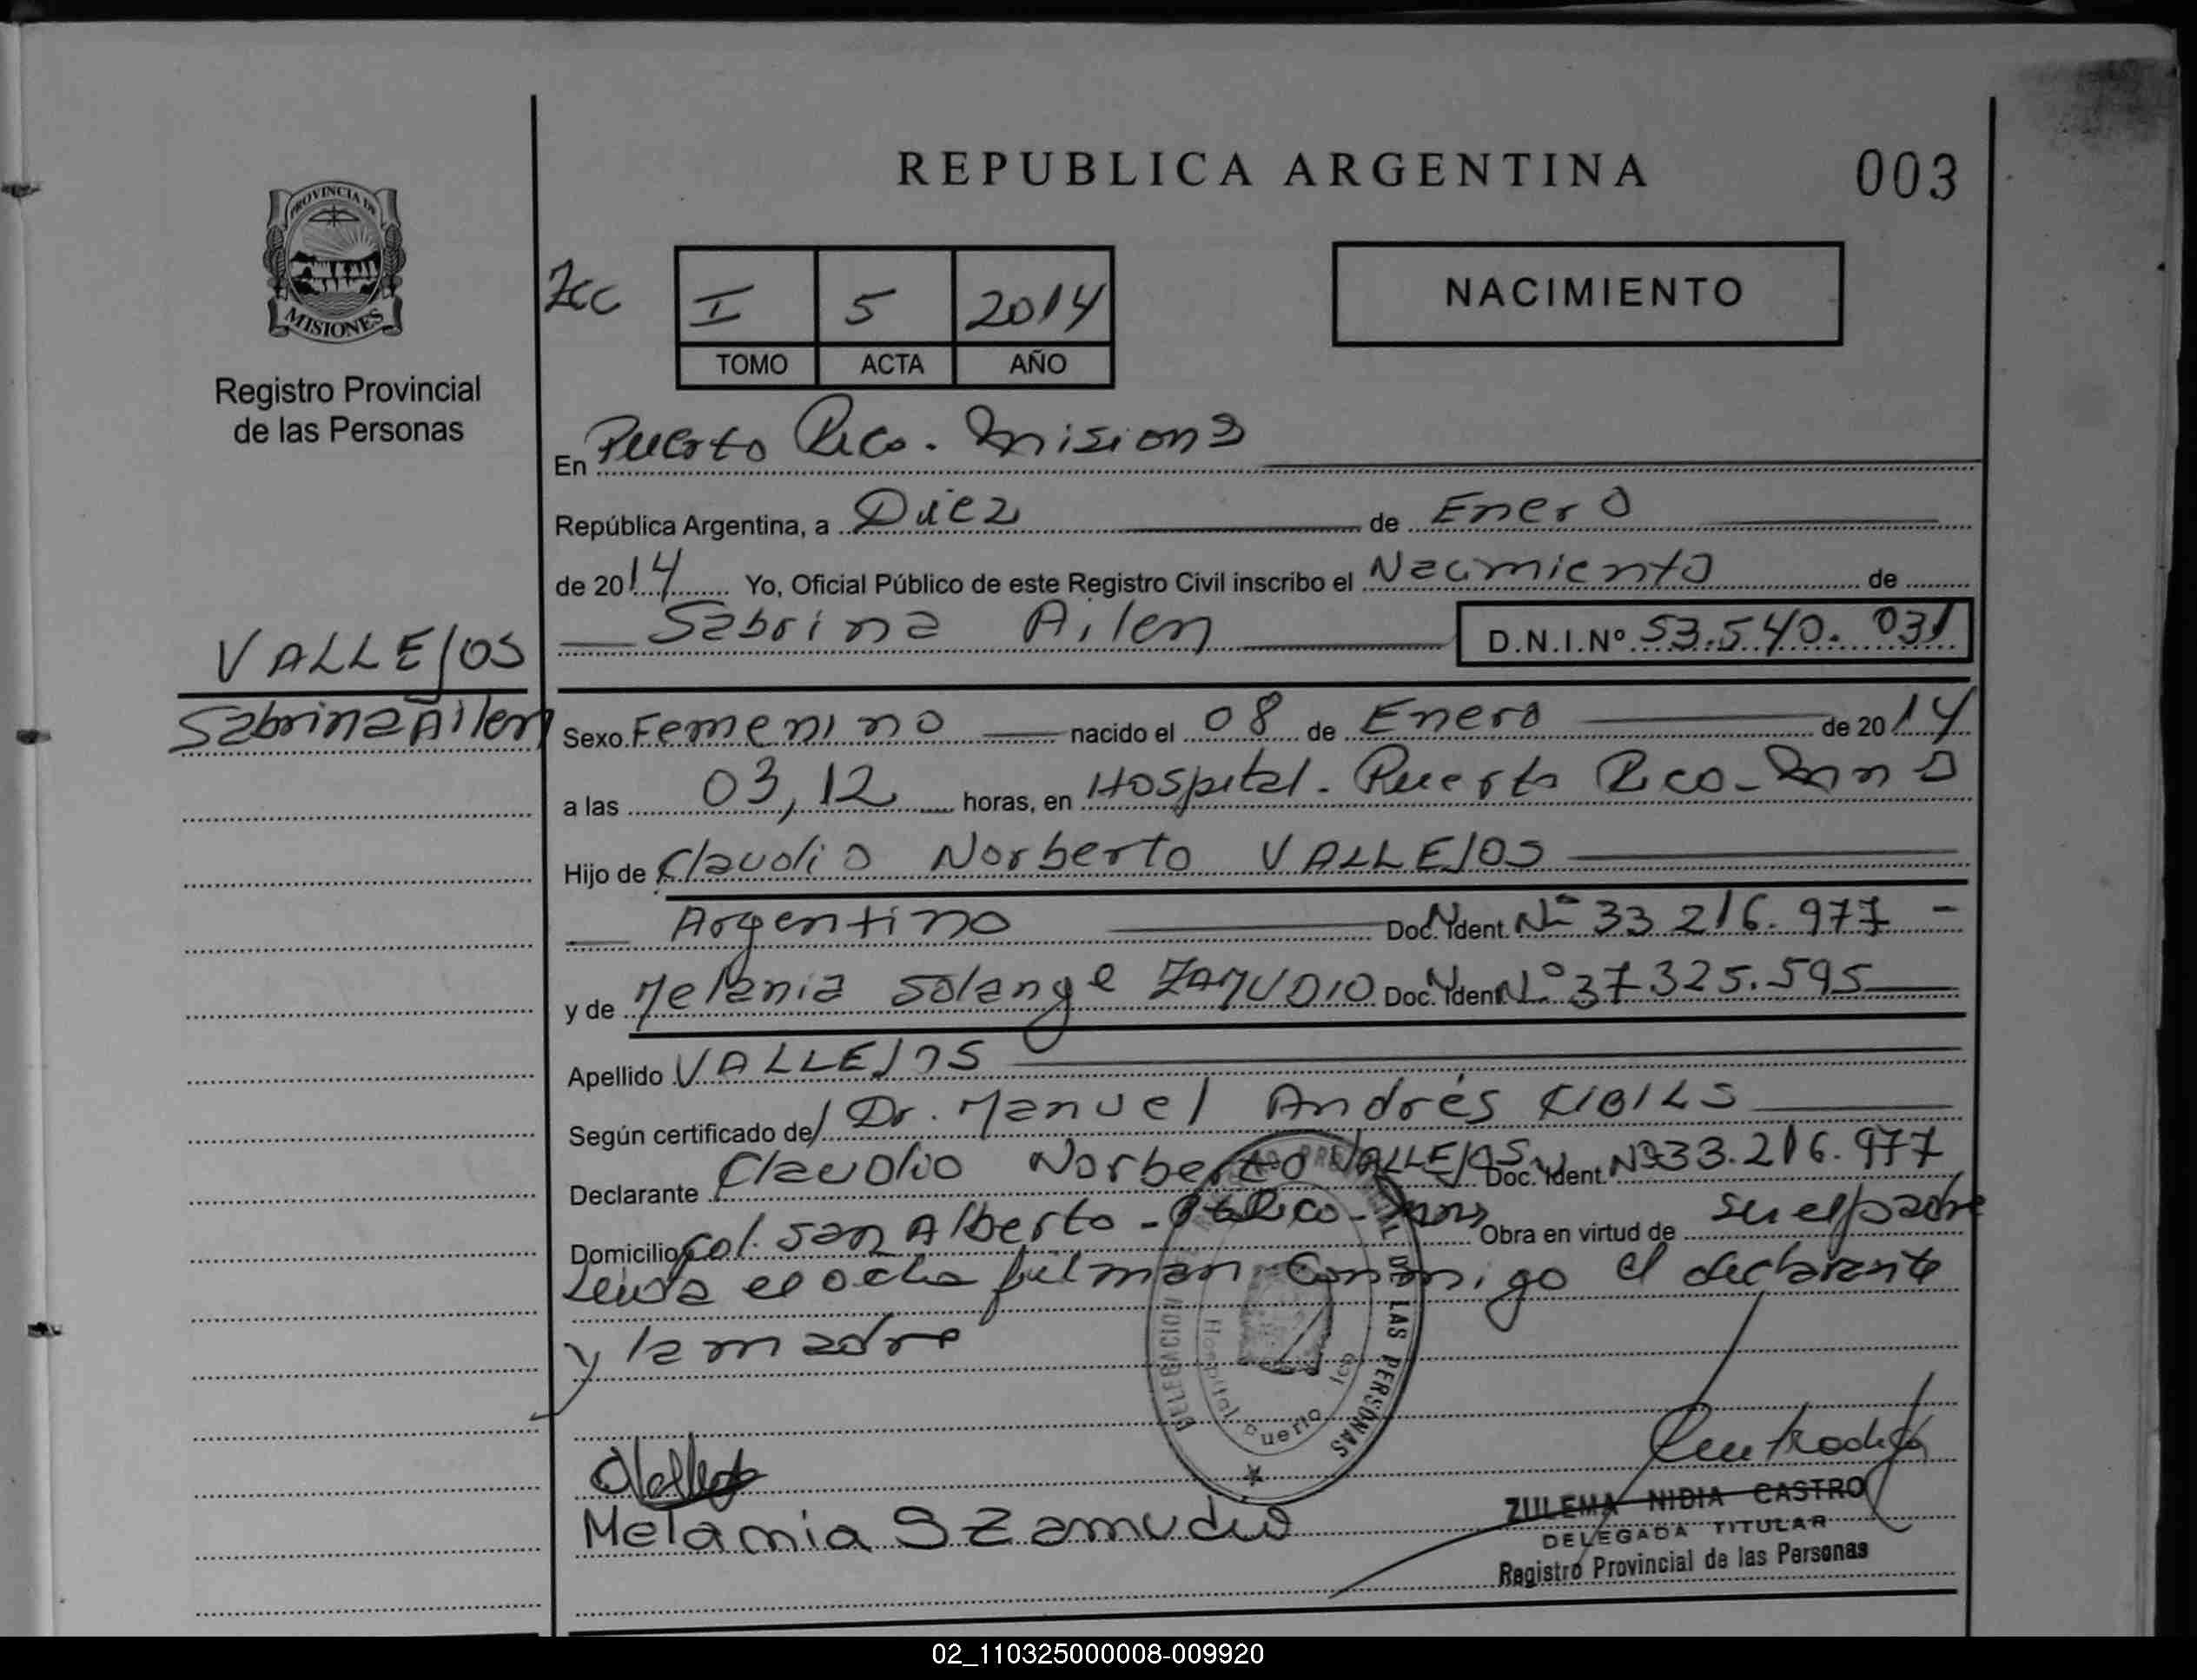 REPUBLICA ARGENTINA
003
PROVINCIA DE
MISIONES
Registro Provincial
de las Personas
I 5 2014
TOMO ACTA AÑO
NACIMIENTO
En Puerto Rico. Misiones
República Argentina, a Diez de Enero
de 2014 Yo, Oficial Público de este Registro Civil inscribo el Nacimiento de
Sabrina Ailen D.N.I.Nº 53.540.031
VALLEJOS
Sabrina Ailen
Sexo Femenino nacido el 08 de Enero de 2014
a las 03,12 horas, en Hospital - Puerto Rico -
Hijo de Claudio Norberto VALLEJOS
Argentino Doc. Ident. Nº 33.216.977 -
y de Melania Solange ZAMUDIO Doc. Ident. Nº 37.325.595
Apellido VALLEJOS
Según certificado de/ Dr. Manuel Andrés CIBILS
Declarante Claudio Norberto VALLEJOS Doc. Ident. Nº 33.216.977
Domicilio Col. San Alberto - Obra en virtud de ser el padre
Leida el acta firman conmigo el declarante
y la madre
DELEGACION REGISTRO PROVINCIAL DE LAS PERSONAS
Hospital Puerto Rico
Melania S Zamudio
ZULEMA NIDIA CASTRO
DELEGADA TITULAR
Registro Provincial de las Personas
02_110325000008-009920